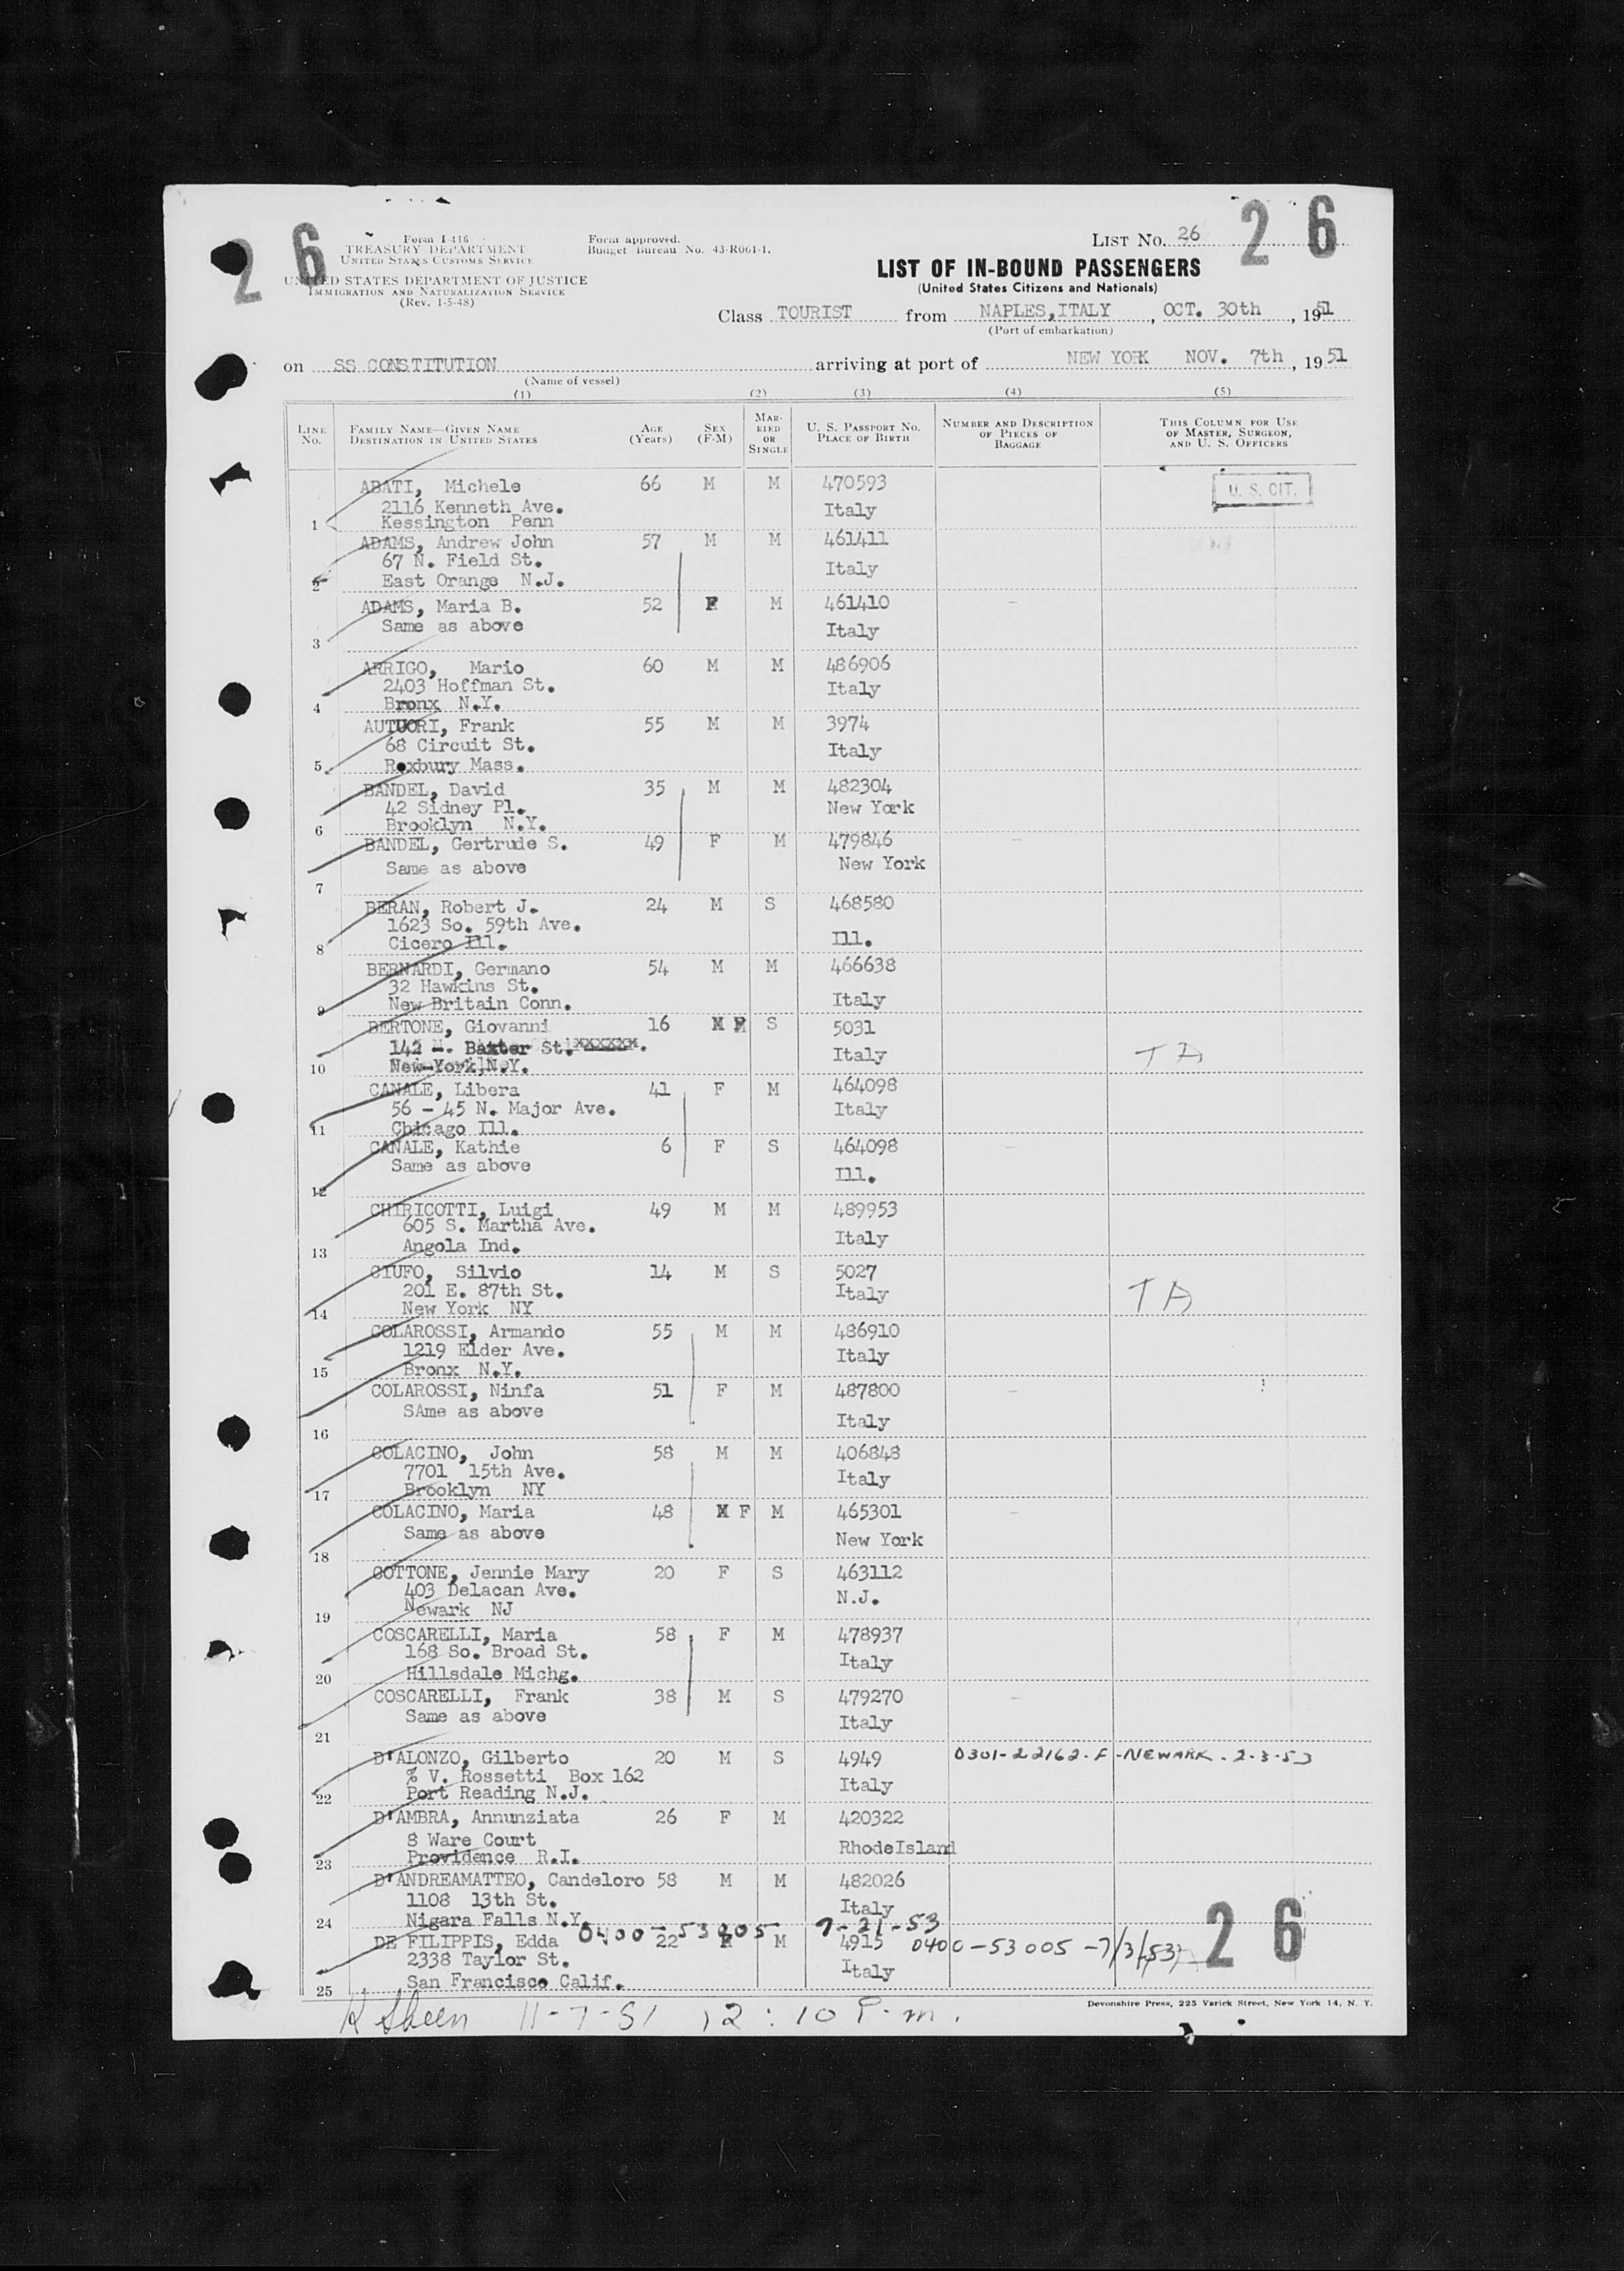 26
Form I-416
TREASURY DEPARTMENT
UNITED STATES CUSTOMS SERVICE
UNITED STATES DEPARTMENT OF JUSTICE
IMMIGRATION AND NATURALIZATION SERVICE
(Rev. 1-5-48)
Form approved.
Budget Bureau No. 43-R061-1.
LIST NO. 26
26
LIST OF IN-BOUND PASSENGERS
(United States Citizens and Nationals)
Class TOURIST from NAPLES, ITALY , OCT. 30th , 1951
(Port of embarkation)
on SS CONSTITUTION arriving at port of NEW YORK NOV. 7th , 1951
(Name of vessel)
(1) (2) (3) (4) (5)
LINE NO. FAMILY NAME—GIVEN NAME DESTINATION IN UNITED STATES AGE (Years) SEX (F-M) MARRIED OR SINGLE U. S. PASSPORT NO. PLACE OF BIRTH NUMBER AND DESCRIPTION OF PIECES OF BAGGAGE THIS COLUMN FOR USE OF MASTER, SURGEON, AND U. S. OFFICERS
ABATI, Michele 66 M M 470593 U. S. CIT.
2116 Kenneth Ave. Italy
1 Kessington Penn
ADAMS, Andrew John 57 M M 461411
67 N. Field St. Italy
2 East Orange N.J.
ADAMS, Maria B. 52 F M 461410
Same as above Italy
3
ARRIGO, Mario 60 M M 486906
2403 Hoffman St. Italy
4 Bronx N.Y.
AUTUORI, Frank 55 M M 3974
68 Circuit St. Italy
5 Roxbury Mass.
BANDEL, David 35 M M 482304
42 Sidney Pl. New York
6 Brooklyn N.Y.
BANDEL, Gertrude S. 49 F M 479846
Same as above New York
7
BERAN, Robert J. 24 M S 468580
1623 So. 59th Ave. Ill.
8 Cicero Ill.
BERNARDI, Germano 54 M M 466638
32 Hawkins St. Italy
9 New Britain Conn.
BERTONE, Giovanni 16 M S 5031
142 Baxter St. xxxxxx. Italy TA
10 New York N.Y.
CANALE, Libera 41 F M 464098
56 - 45 N. Major Ave. Italy
11 Chicago Ill.
CANALE, Kathie 6 F S 464098
Same as above Ill.
12
CHIRICOTTI, Luigi 49 M M 489953
605 S. Martha Ave. Italy
13 Angola Ind.
CIUFO, Silvio 14 M S 5027
201 E. 87th St. Italy TA
14 New York NY
COLAROSSI, Armando 55 M M 486910
1219 Elder Ave. Italy
15 Bronx N.Y.
COLAROSSI, Ninfa 51 F M 487800
SAme as above Italy
16
COLACINO, John 58 M M 406848
7701 15th Ave. Italy
17 Brooklyn NY
COLACINO, Maria 48 F M 465301
Same as above New York
18
COTTONE, Jennie Mary 20 F S 463112
403 Delacan Ave. N.J.
19 Newark NJ
COSCARELLI, Maria 58 F M 478937
168 So. Broad St. Italy
20 Hillsdale Michg.
COSCARELLI, Frank 38 M S 479270
Same as above Italy
21
D'ALONZO, Gilberto 20 M S 4949 0301-22162-F-NEWARK-2-3-53
% V. Rossetti Box 162 Italy
22 Port Reading N.J.
D'AMBRA, Annunziata 26 F M 420322
8 Ware Court RhodeIsland
23 Providence R.I.
D'ANDREAMATTEO, Candeloro 58 M M 482026
1108 13th St. Italy
24 Nigara Falls N.Y.
0400-53005 7-21-53
DE FILIPPIS, Edda 22 M 4915 0400-53005 -7/3/53
2338 Taylor St. Italy
25 San Francisco Calif.
26
Devonshire Press, 225 Varick Street, New York 14, N. Y.
K Sheen 11-7-51 12:10 P.m.